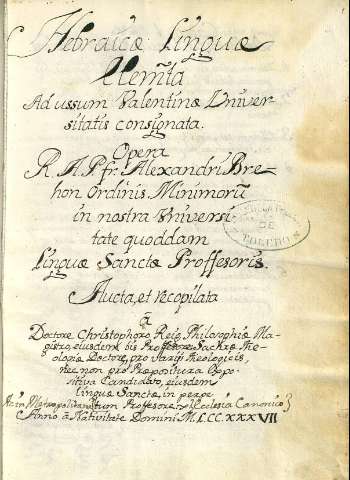 Hebraicæ Linguæ
Elem̃ta
Ad ussum Valentinæ Univer-
sitatis consignata.
Opera
R. A. P. fr. Alexandri Bre-
hon Ordinis Minimorũ
in nostra Universi
tate quoddam
Linguæ Sanctæ Proffesoris.
Aucta, et recopilata
à
Doctore Christophoro Reig Philosophiæ Ma-
gistro, ejusdem bis Proffesore Sacræ The-
ologiæ Doctore, pro
nec non pro Prepositura Expo-
sitiva Candidato, ejusdem
Linguæ Sanctæ in
Metropolitana Proffesore, Ecclesia Canonico
Anno à Nativitate Domini MDCCXXXVII
DE
TOLEDO